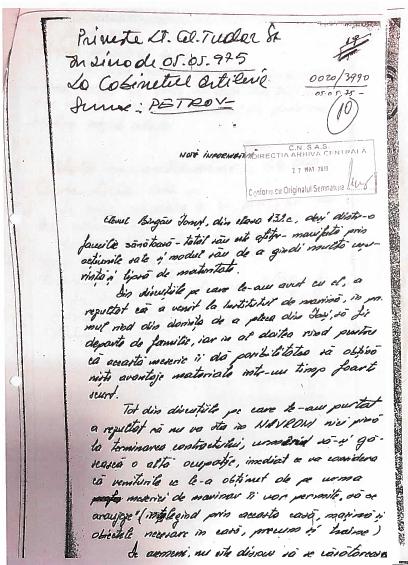 Primește Lt. Col. Tudor Șt
În ziua de 05.05.975
La Cabinetul Artilerie
Sursa: PETROV
19
0020/3990
05.05.75-
10
NOTĂ INFORMATIVĂ
C.N.S.A.S.
DIRECȚIA ARHIVA CENTRALĂ
27 MAI 2011
Conform cu Originalul Semnătura
Elevul Ionuț, din clasa 132c, deși dintr-o
familie sănătoasă - tatăl său este ofițer - manifestă prin
acțiunile sale și modul său de a gîndi multă
și lipsă de maturitate.
Din discuțiile pe care le-am avut cu el, a
rezultat că a venit la Institutul de marină, în pri-
mul rînd din dorința de a pleca din Iași, să fie
departe de familie, iar în al doilea rînd pentru
că această meserie îi dă posibilitatea să obțină
niște avantaje materiale într-un timp foarte
scurt.
Tot din discuțiile pe care le-am purtat
a rezultat că nu va sta în NAVROM nici pînă
la terminarea contractului, urmînd să-și gă-
sească o altă ocupație, imediat ce va considera
că veniturile ce le-a obținut de pe urma
meseriei de marinar îi vor permite, să se
aranjeze (înțelegînd prin aceasta casă, mașină și
obiectele necesare în casă, precum și haine)
De asemeni, nu este dispus să se căsătorească